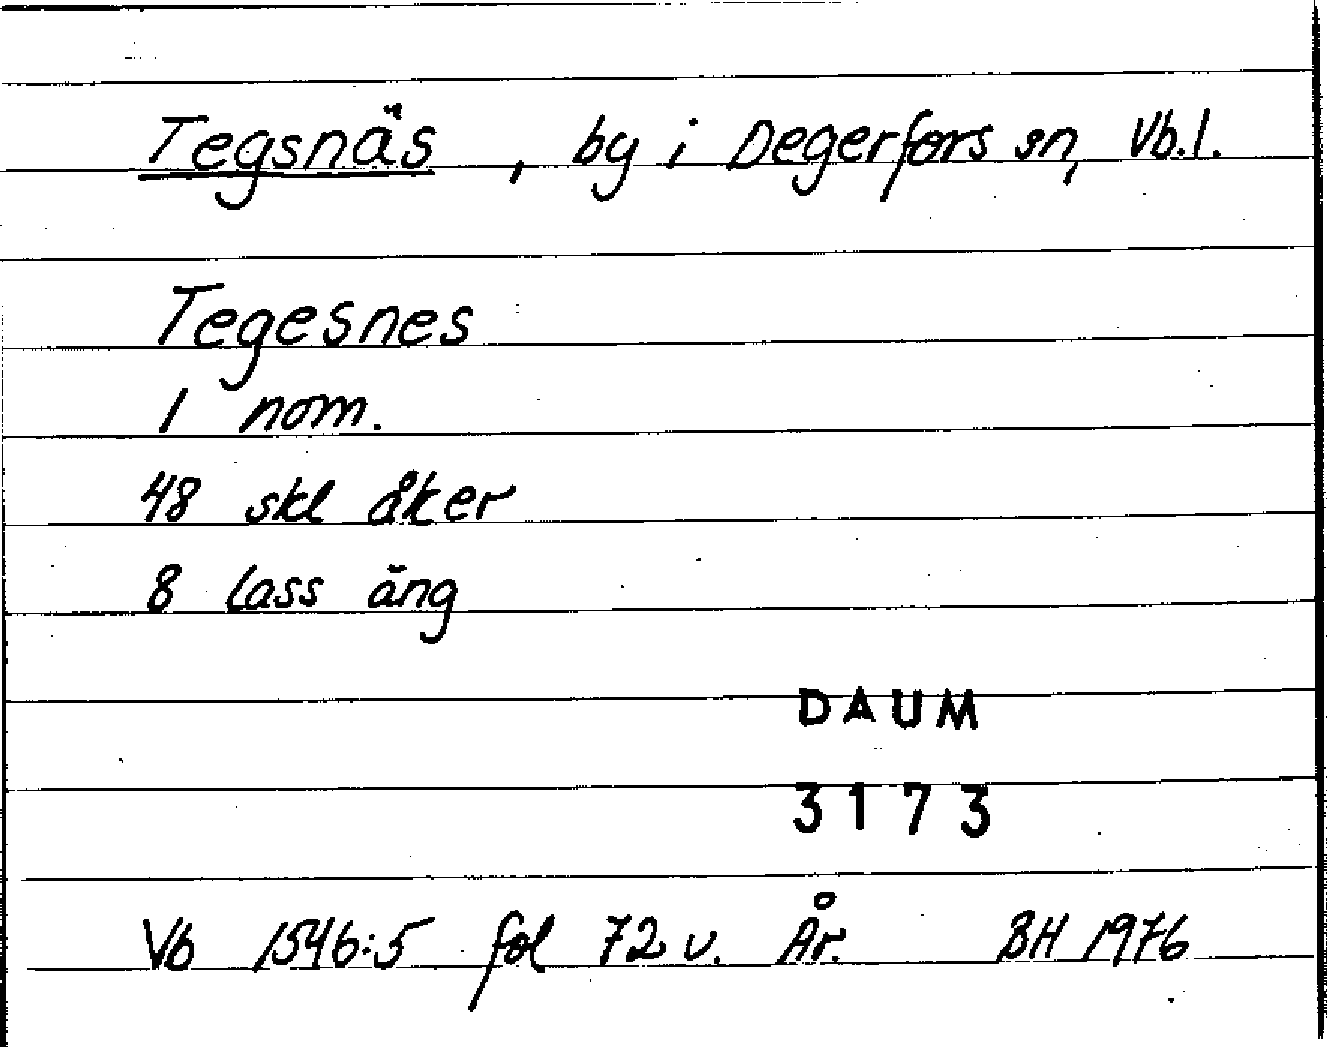 Tegsnäs, by i Degerfors sn, Vb.l.
Tegesnes
1 nom.
48 skl åker
8 lass äng
DAUM
3173
Vb 1546:5 fol 72 v. År. BH 1976